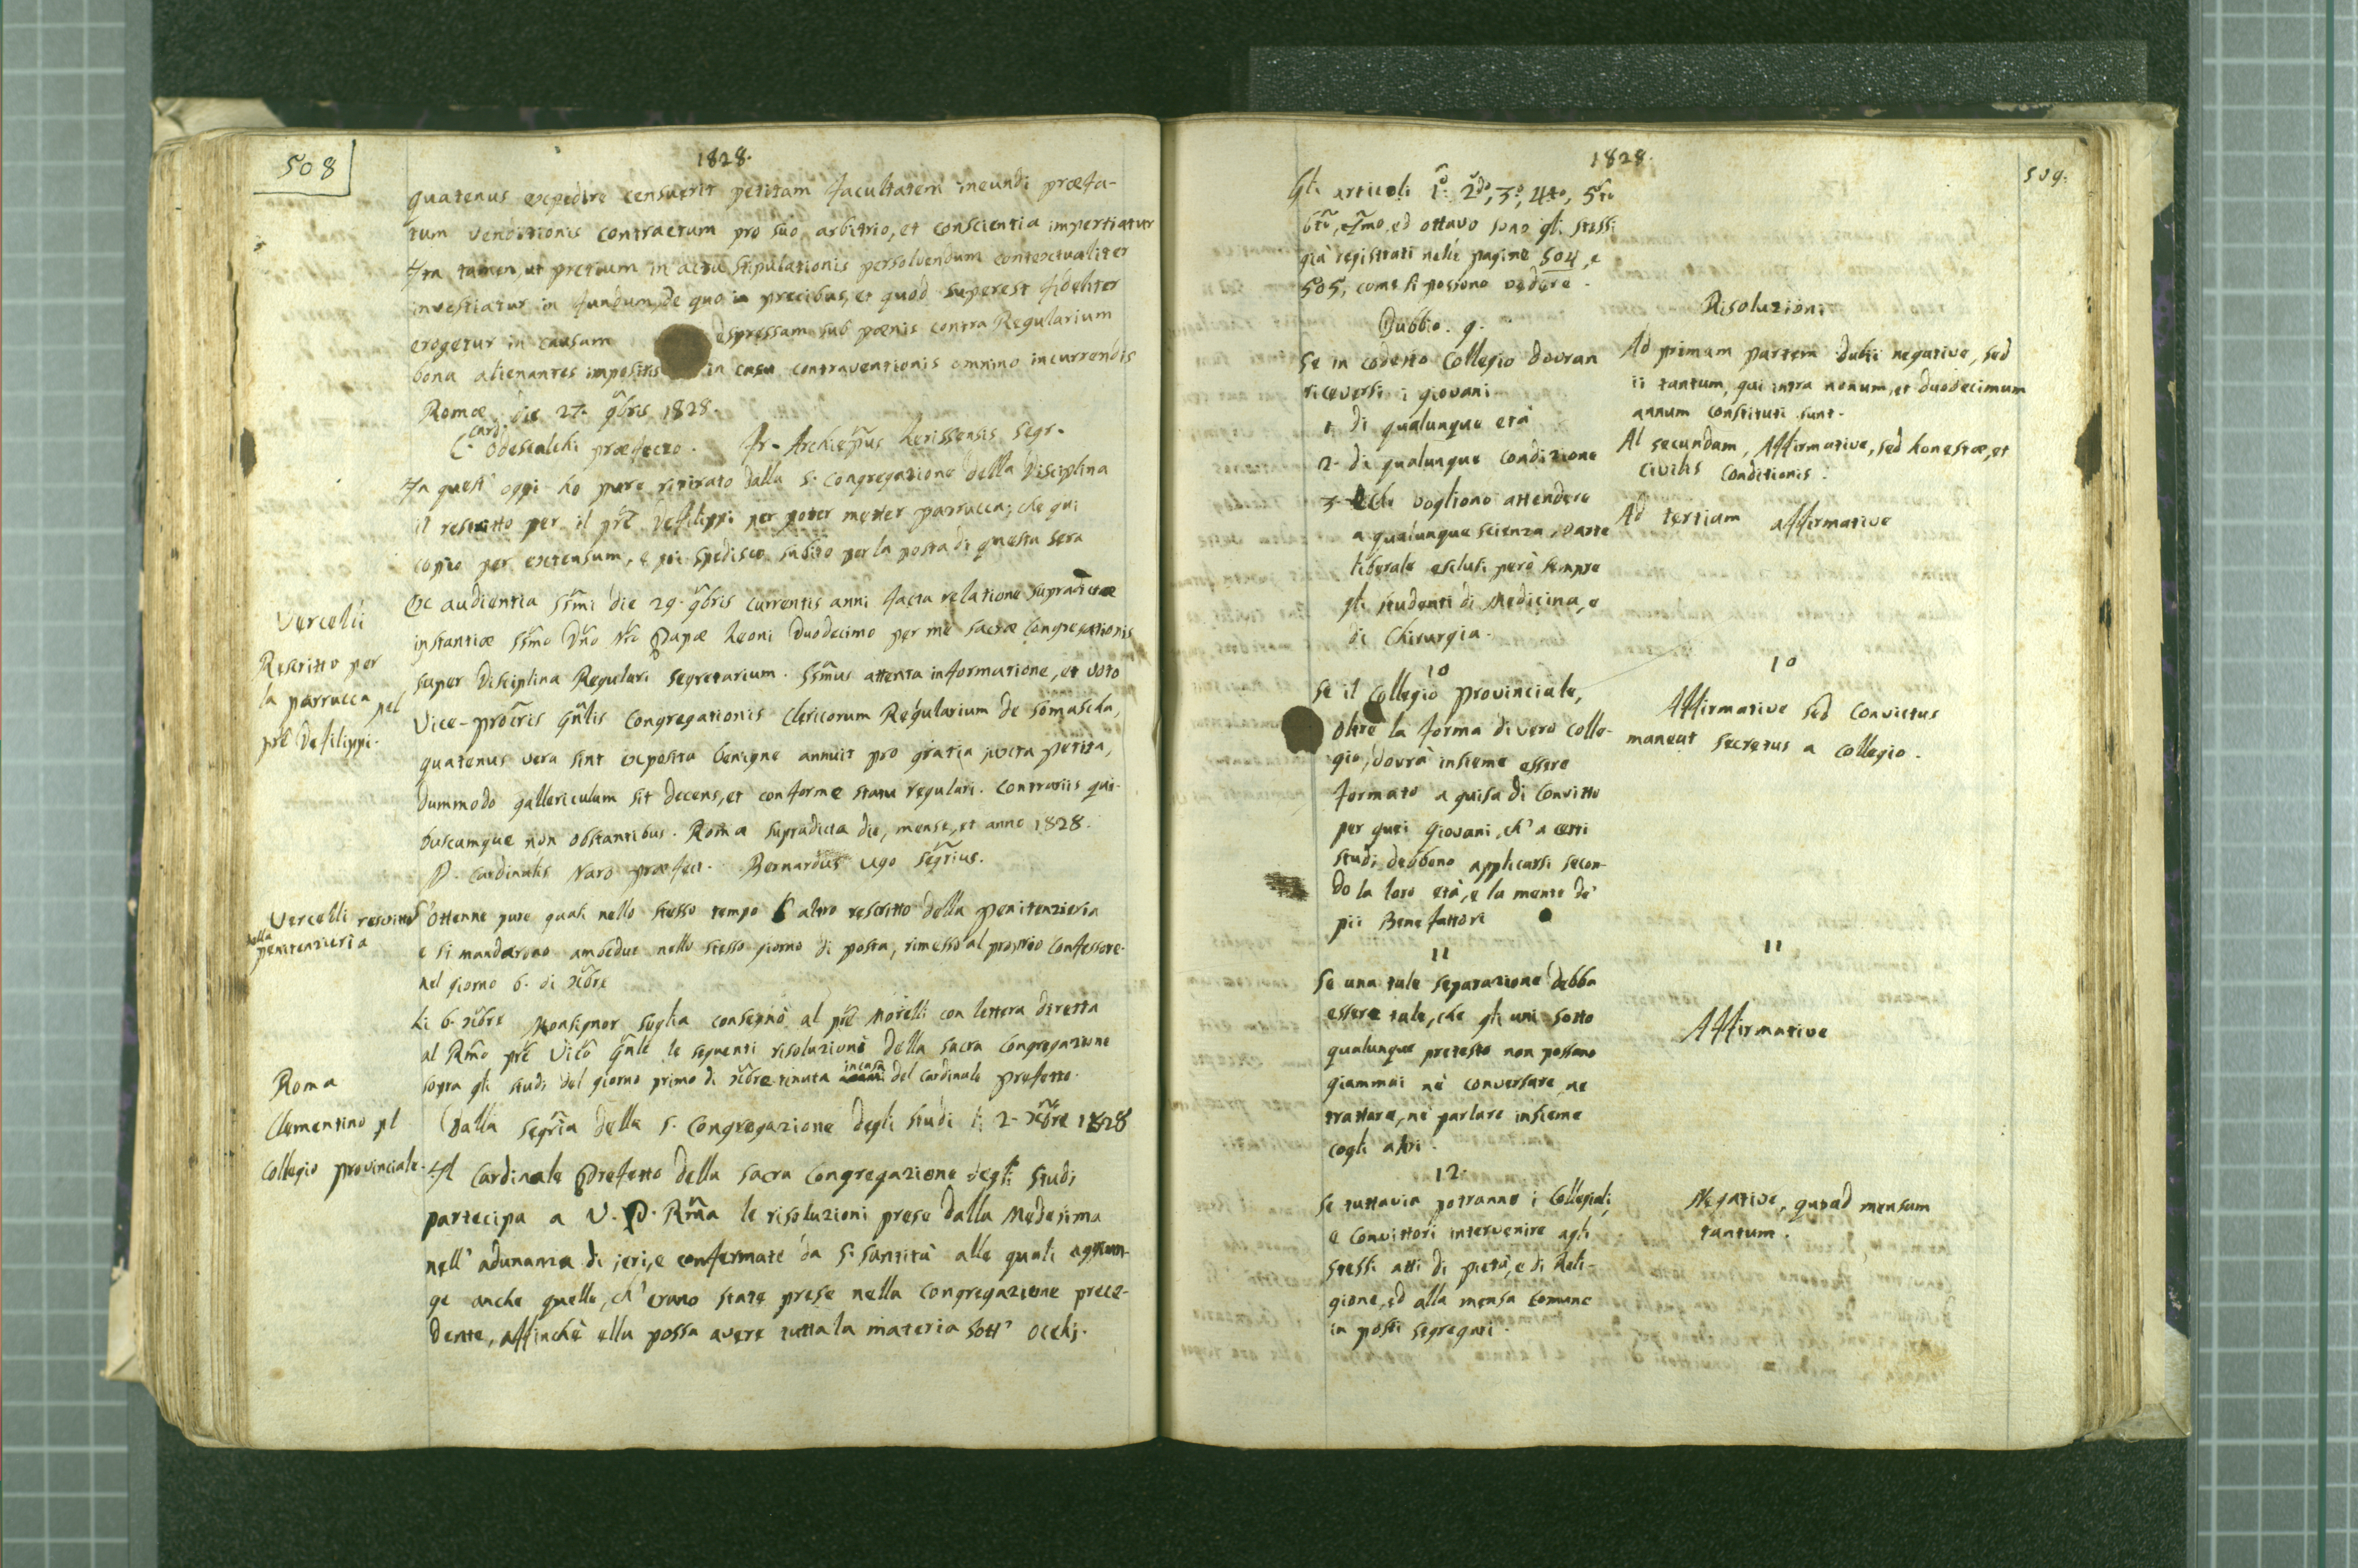 508
1828.
quatenus expedire censuerit petitam facultatem ineundi præfa-
tum venditionis contractum pro suo arbitrio, et conscientia impertiatur
Ita tamen, ut pretium in actu stipulationis persolvendum contextualiter
investiatur in fundum, de quo in precibus, et quod superest fideliter
erogetur in causam espressam sub pœnis contra Regularium
bona alienantes impositis in casu contraventionis omnino incurrendis
Romæ, die 27. 9bris 1828.
C. Card. Odescalchi præfecto. Fr. Archiepus Larissensis Segr.
In quest' oggi ho pure ritirato dalla S. Congregazione della Disciplina
il rescritto per il pre Defilippi per poter metter parrucca; che qui
copio per extensum, e poi spedisco subito per la posta di questa sera
Vercelli
Rescritto per
la parrucca pel
pre Defilippi.
Ex audientia SSmi die 29. 9bris currentis anni facta relatione supradictæ
instantiæ SSmo Dno Nro Papæ Leoni Duodecimo per me Sacræ Congregationis
super Disciplina Regulari Segretarium. SSmus attenta informatione, et voto
Vice-procris Gnlis Congregationis Clericorum Regularium de Somascha,
quatenus vera sint exposita benigne annuit pro gratia juxta petita,
dummodo gallericulum sit decens, et conforme statu regulari. Contrariis qui-
buscumque non obstantibus. Roma supradicta die, mense, et anno 1828.
D. Cardinalis Naro præfect. Bernardus Ugo Segrius.
Vercelli rescritto
della
penitenzieria
S'ottenne pure quasi nello stesso tempo l' altro rescritto della penitenzieria
e si mandarono ambedue nello stesso giorno di posta, rimesso al proprio Confessore
nel giorno 6. di Xbre
Li 6. Xbre Monsignor Soglia consegnò al pre Morelli con lettera diretta
al Rmo pre Vico Gnle le seguenti risoluzioni della Sacra Congregazione
sopra gli studi del giorno primo di Xbre tenuta in casa del Cardinale prefetto.
Roma
Clementino pel
Collegio provinciale.
Dalla Segria della S. Congregazione degli Studi li 2. Xbre 1828
Il Cardinale Prefetto della Sacra Congregazione degli Studi
partecipa a V. P. Rma le risoluzioni prese dalla Medesima
nell' adunanza di jeri, e confermate da S. Santità alle quali aggiun-
ge anche quelle, ch' erano state prese nella Congregazione prece-
dente, affinchè ella possa avere tutta la materia sott' occhj.
1828.
509.
Gli articoli 1o. 2do, 3o, 4to, 5to
6to, 7mo, ed ottavo sono gli stessi
già registrati nelle pagine 504, e
505, come si possono vedere.
Dubbio. 9.
Se in codesto Collegio dovran
riceversi i giovani
1. di qualunque età
2. di qualunque condizione
3. Che vogliono attendere
a qualunque scienza, o arte
liberale esclusi però sempre
gli studenti di Medicina, e
di Chirurgia.
Risoluzioni
Ad primam partem dubii negative, sed
ii tantum, qui intra nonum, et duodecimum
annum constituti sunt.
Al secundam, Affirmative, sed honestæ, et
civilis conditionis.
Ad tertiam affirmative
10
Se il Collegio provinciale,
oltre la forma di vero colle-
gio, dovrà insieme essere
formato a guisa di Convitto
per quei Giovani, ch' a certi
studi debbono applicarsi secon-
do la loro età, e la mente de'
pii Benefattori
10
Affirmative sed Convictus
maneat secretus a collegio.
11
Se una tale separazione debba
essere tale, che gli uni sotto
qualunque pretesto non possano
giammai nè conversare, ne
trattare, nè parlare insieme
cogli altri.
11
Affirmative
12.
Se tuttavia potranno i Collegiali,
e Convittori intervenire agli
stessi atti di pietà, e di Reli-
gione, ed alla mensa comune
in posti segregati.
Negative, quoad mensam
tantum.